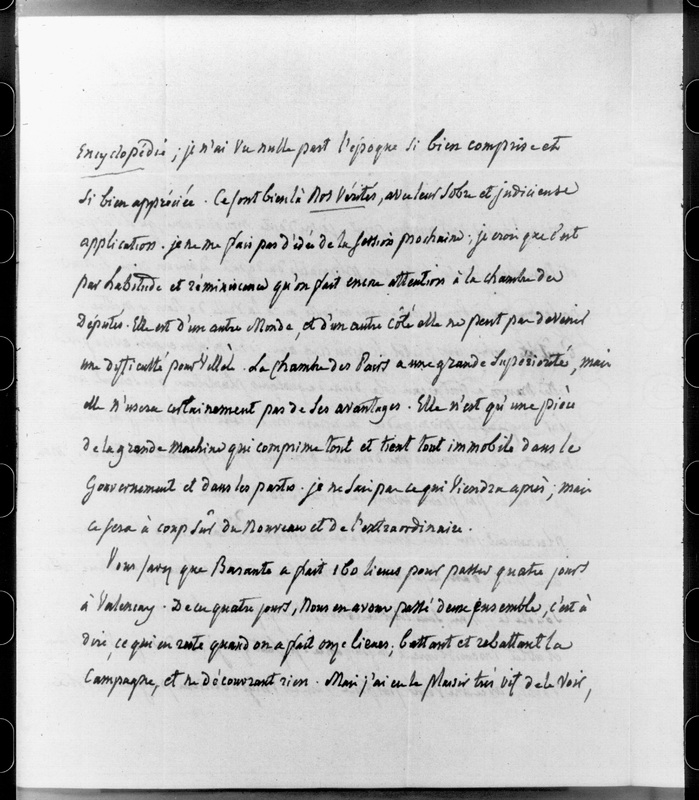 Encyclopédie ; je n'ai vu nulle part l'époque si bien comprise et
si bien appréciée . Ce sont bien là Nos Vérités, avec leur sobre et judicieuse
application . je ne me fais pas d'idée de la session prochaine ; je crois que c'est
par habitude et réminiscence qu'on fait encore attention à la chambre des
Députés . Elle est d'un autre Monde, et d'un autre côté elle ne peut pas devenir
une difficulté pour Villèle . La Chambre des Pairs a une grande Supériorité, mais
elle n'usera certainement pas de ses avantages . Elle n'est qu'une pièce
de la grande Machine qui comprime tout et tient tout immobile dans le
Gouvernement et dans les partis . je ne sais pas ce qui viendra après ; mais
ce sera à coup sûr du Nouveau et de l'extraordinaire .
Vous savez que Barante a fait 160 lieues pour passer quatre jours
à Valençay . De ces quatre jours, Nous en avons passé deux ensemble, c'est à
dire, ce qui en reste quand on a fait onze lieues, battant et rebattant la
Campagne, et ne découvrant rien . Mais j'ai eu le plaisir très vif de le voir,